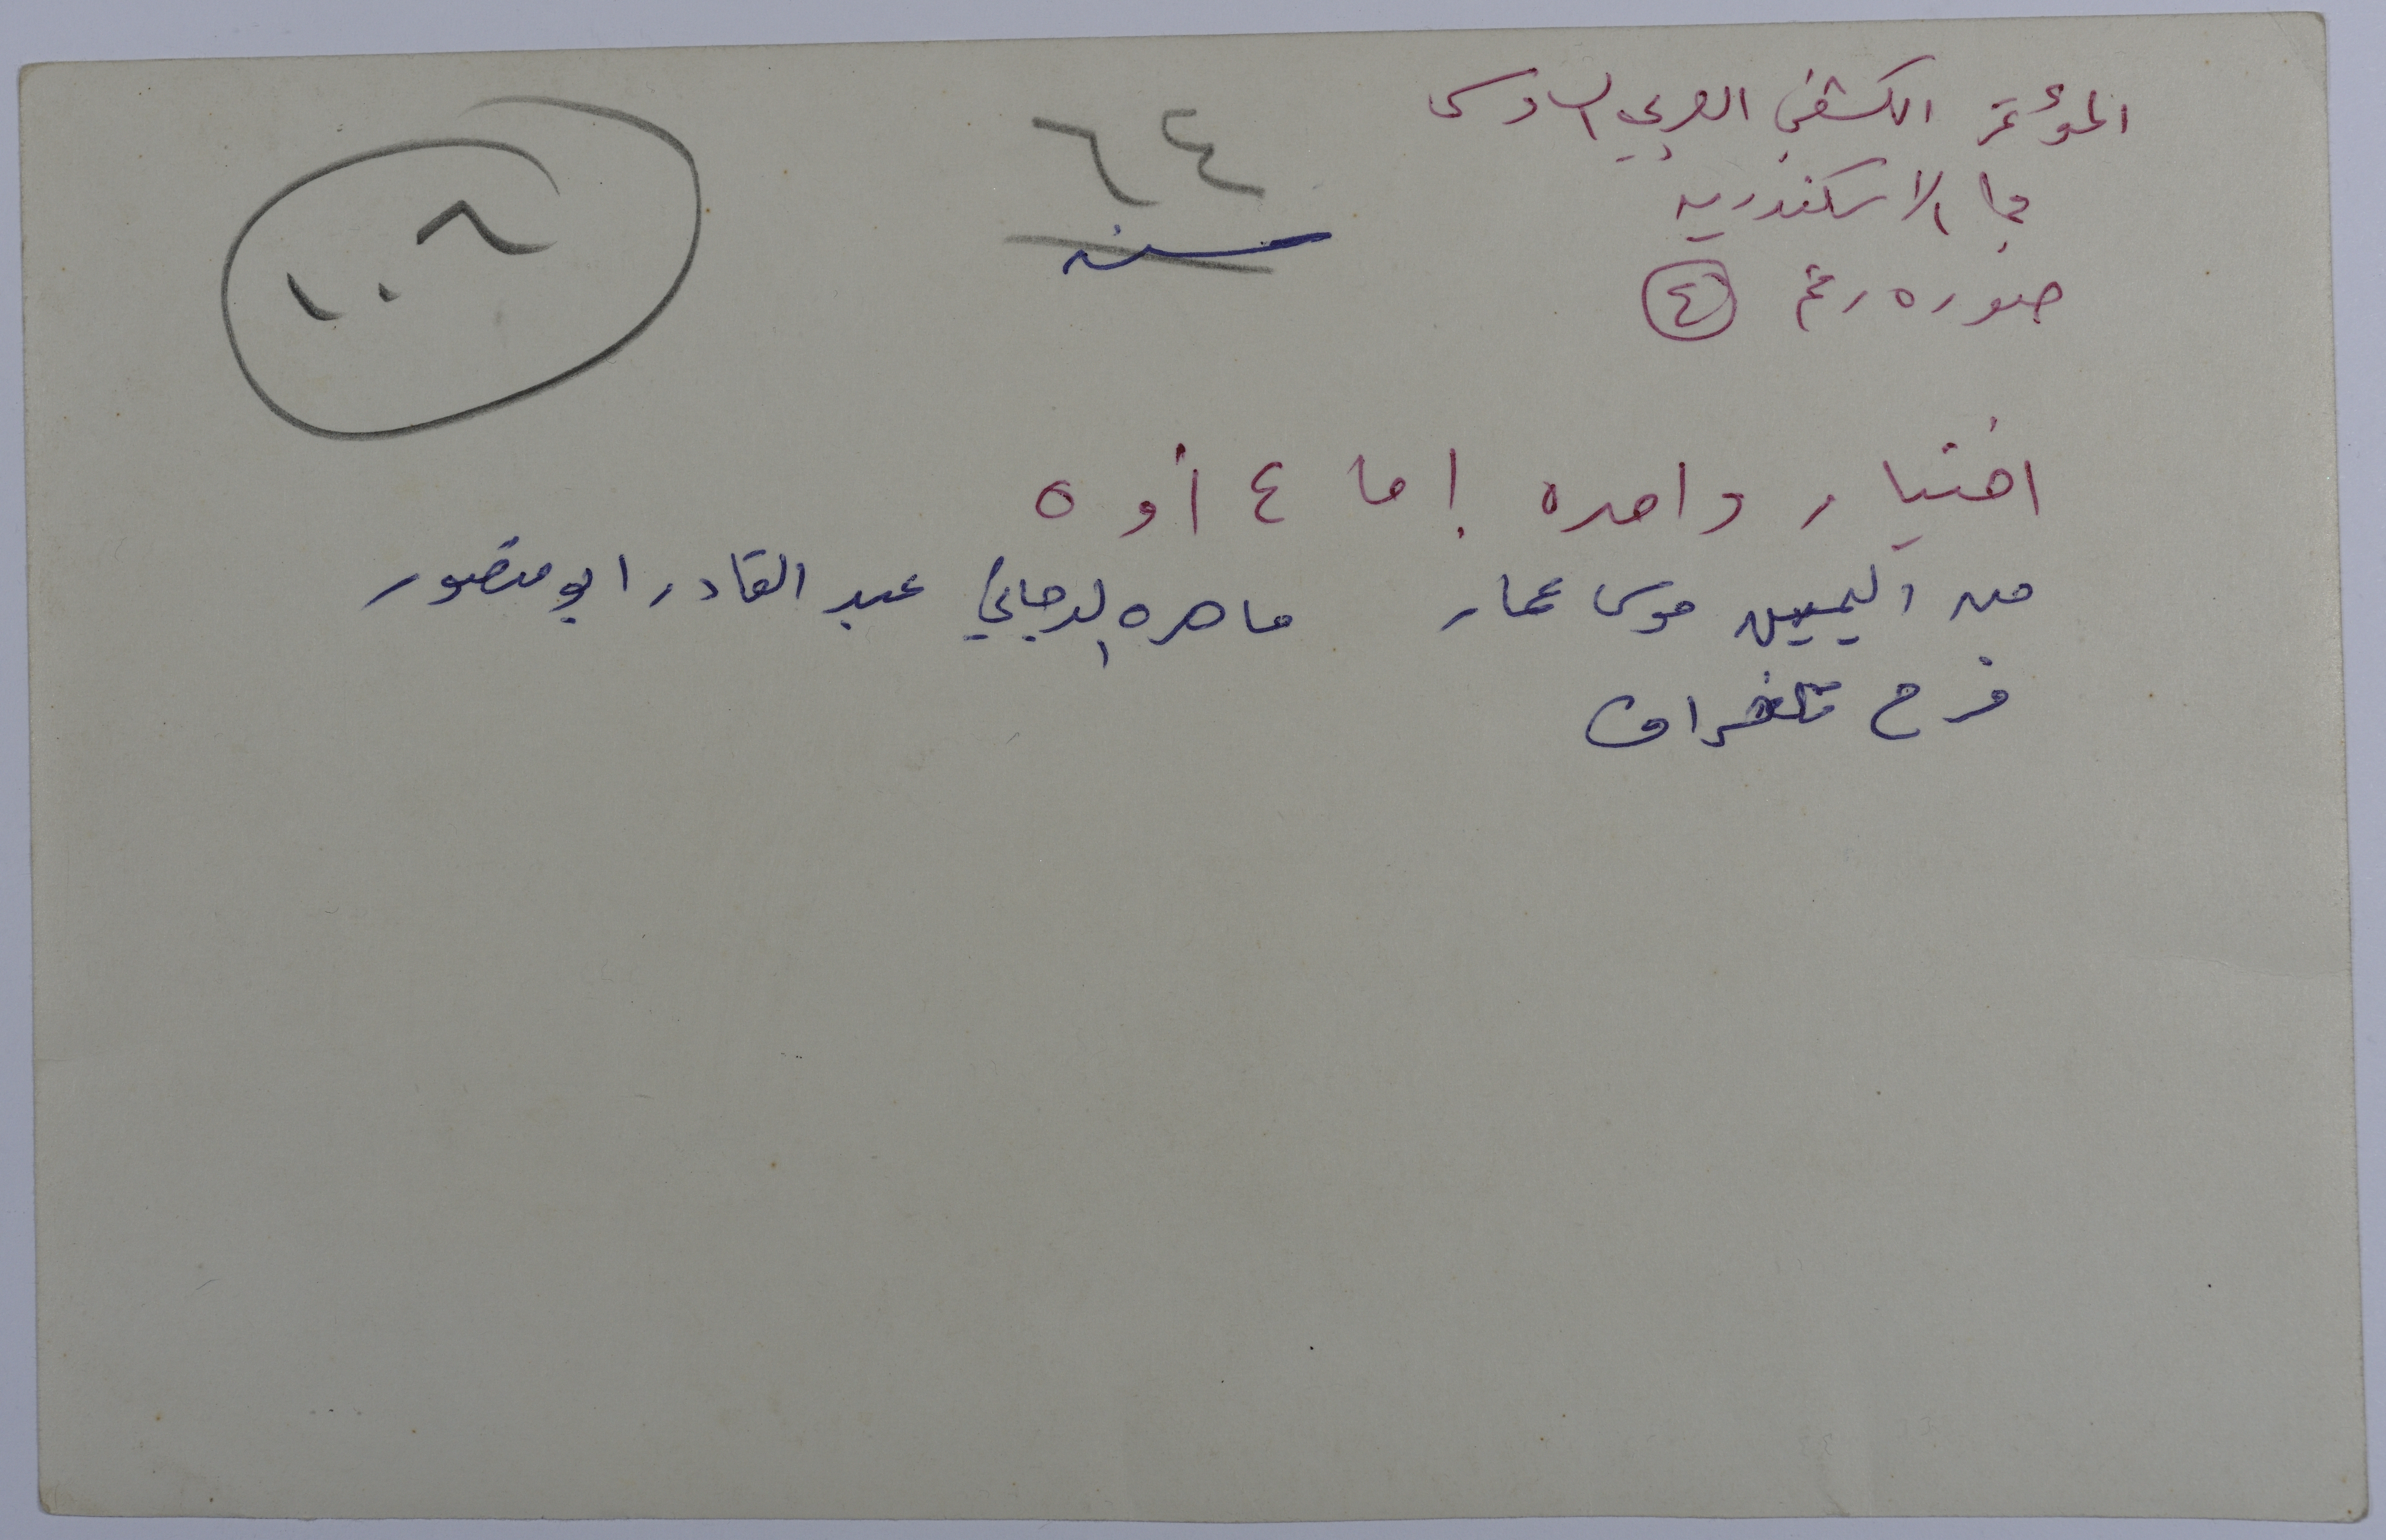 المؤتمر الكشفي العربي السادس
في الاسكندريه
صوره رقم ٤
٦٤
سنه
١٠٨
اختيار واحده إما ٤ أو ٥
من اليمين موسى عمار ماهره الدجاني عبد القادر ابو منصور
فرح